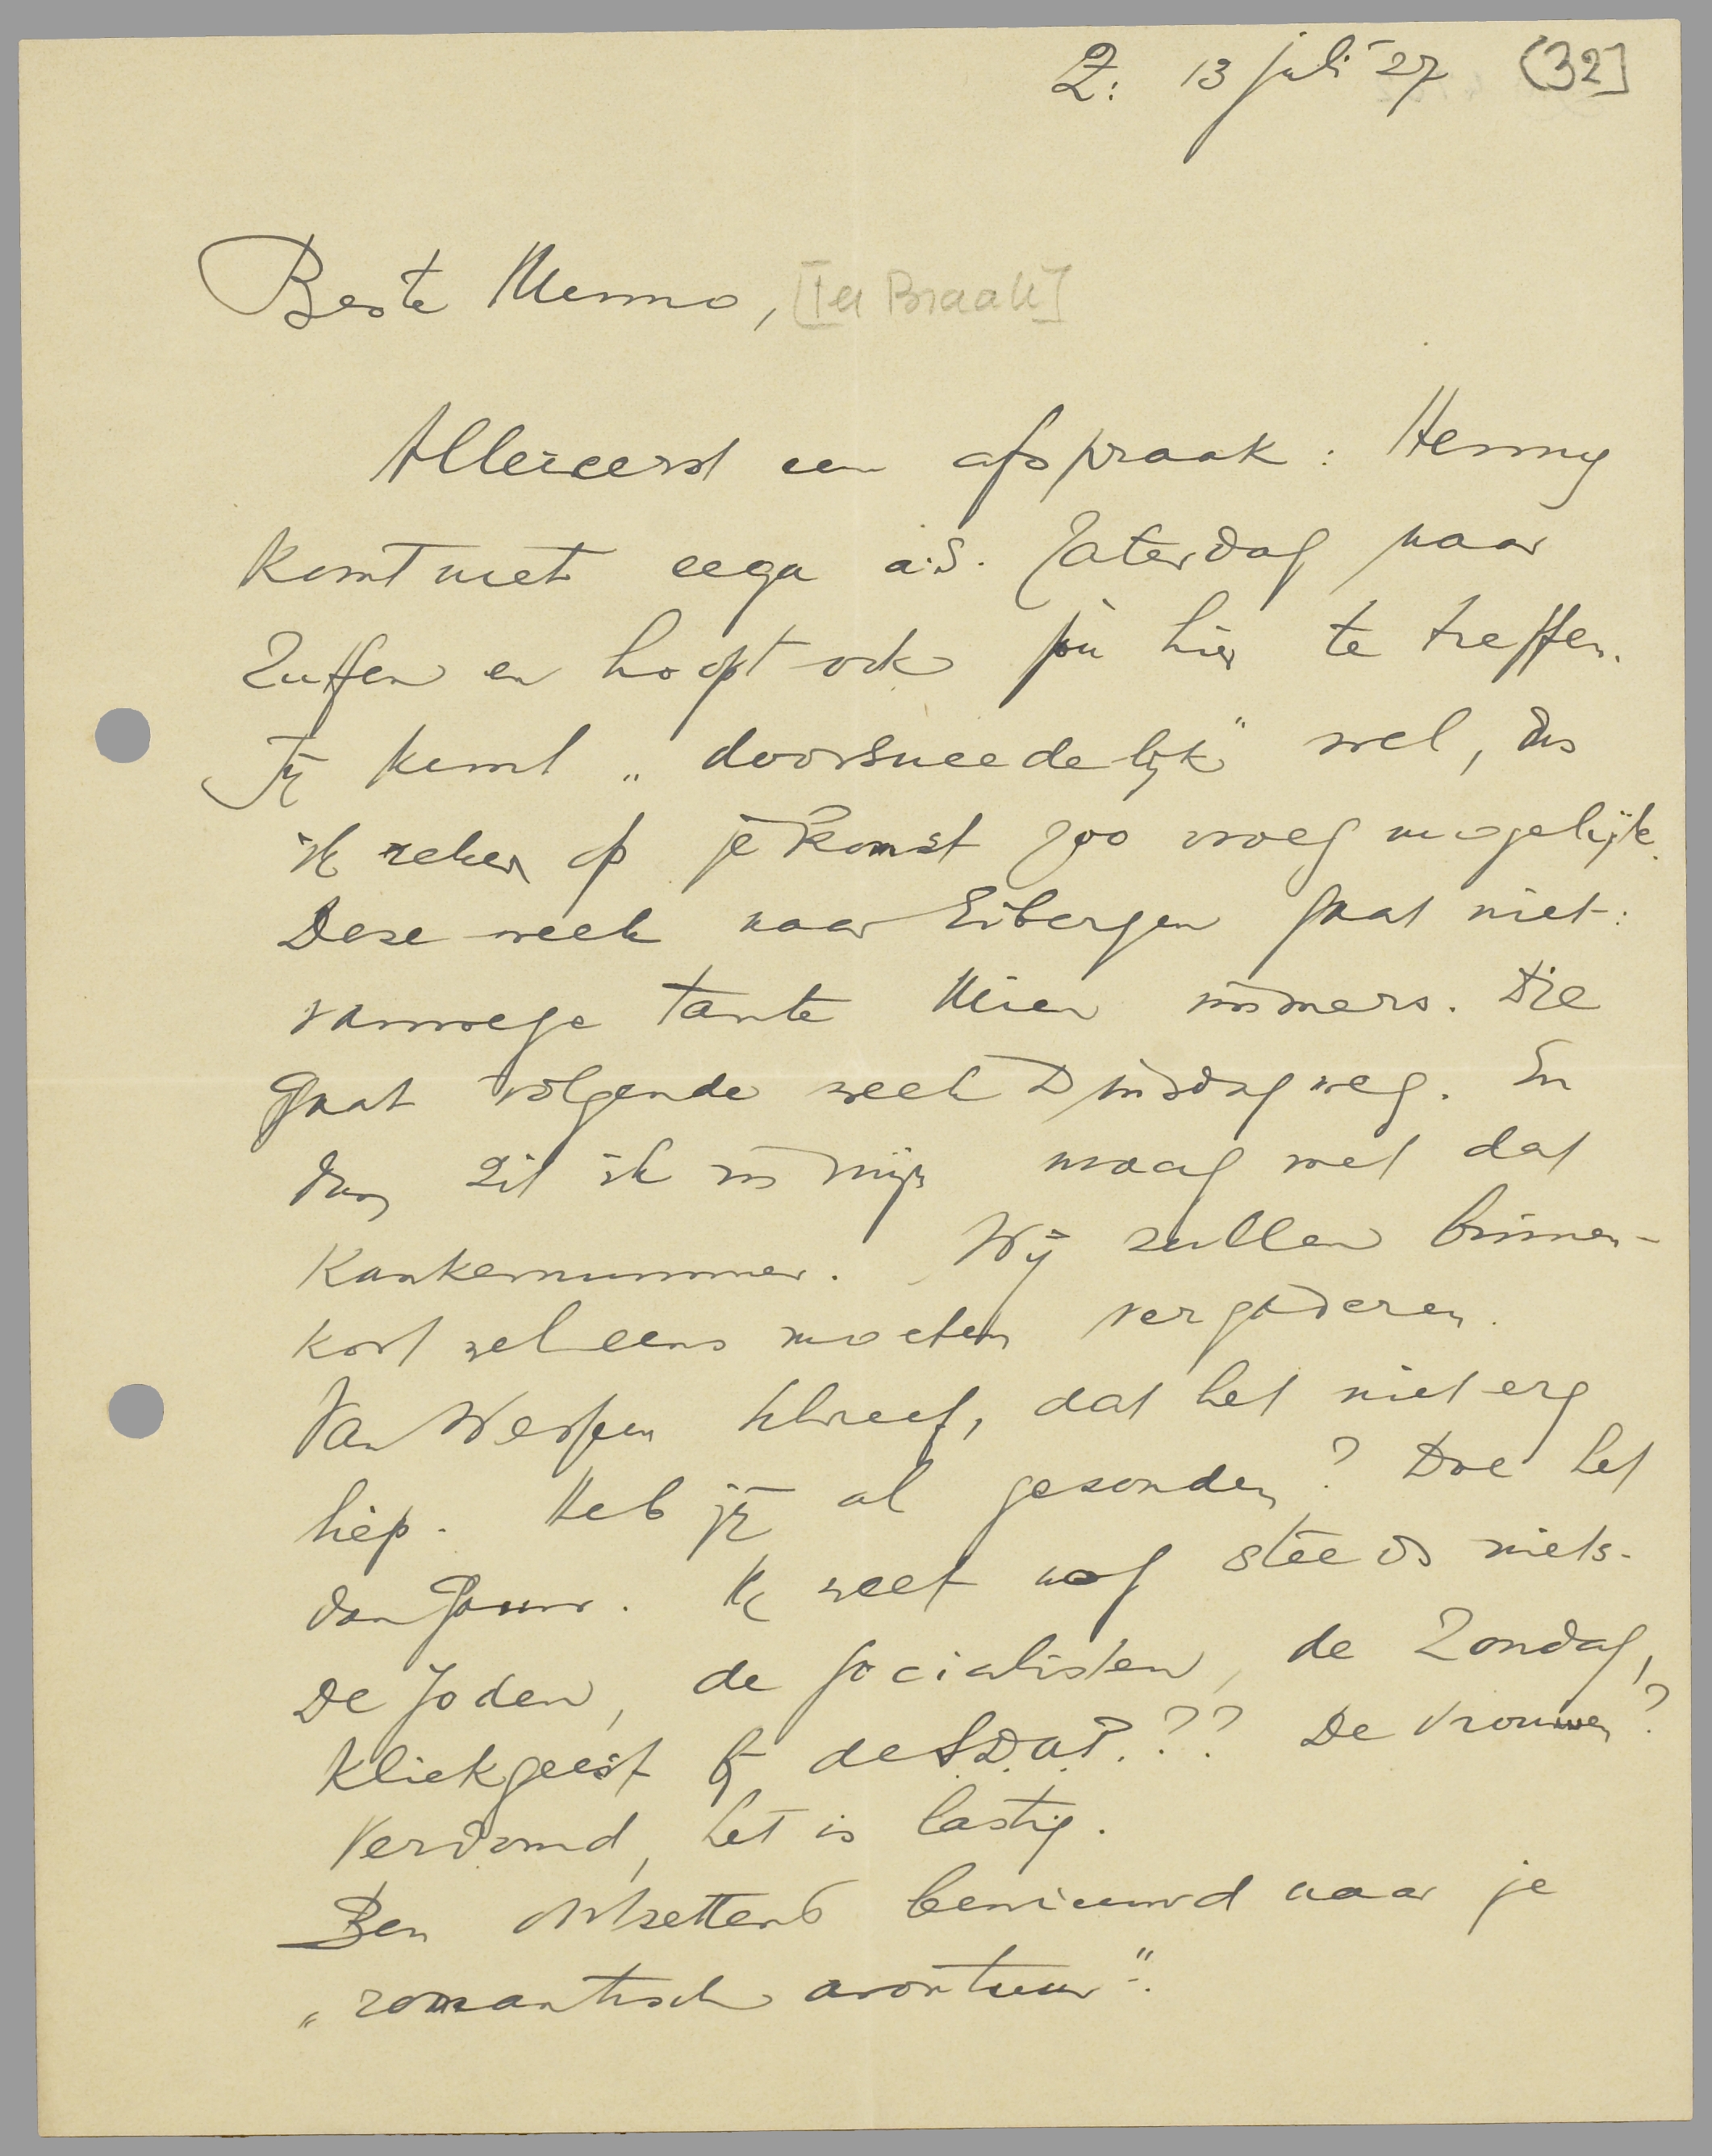 Z: 13 juli '27 (32]
Beste Menno, [ter Braak]
Allereerst een afspraak: Henny
komt met eega a.s. Zaterdag naar
Zutfen en hoopt ook jou hier te treffen.
Jij kent „doorsneedelijk" wel, dus
ik reken op je komst zoo vroeg mogelijk.
Deze week naar Eibergen gaat niet:
vanwege tante Mien immers. Die
gaat volgende week Dinsdag weg. En
dan zit ik in mijn maag met dat
Kankernummer. Wij zullen binnen-
kort wel eens moeten vergaderen.
Van Wessem schreef, dat het niet erg
liep. Heb jij al gezonden? Doe het
dan gauw. Ik weet nog steeds niets.
De Joden, de socialisten, de Zondag,
Kliekgeest bij de S.D.A.P.??? De vrouwen?
Verdomd, het is lastig.
Ben ontzettend benieuwd naar je
„romantisch avontuur".